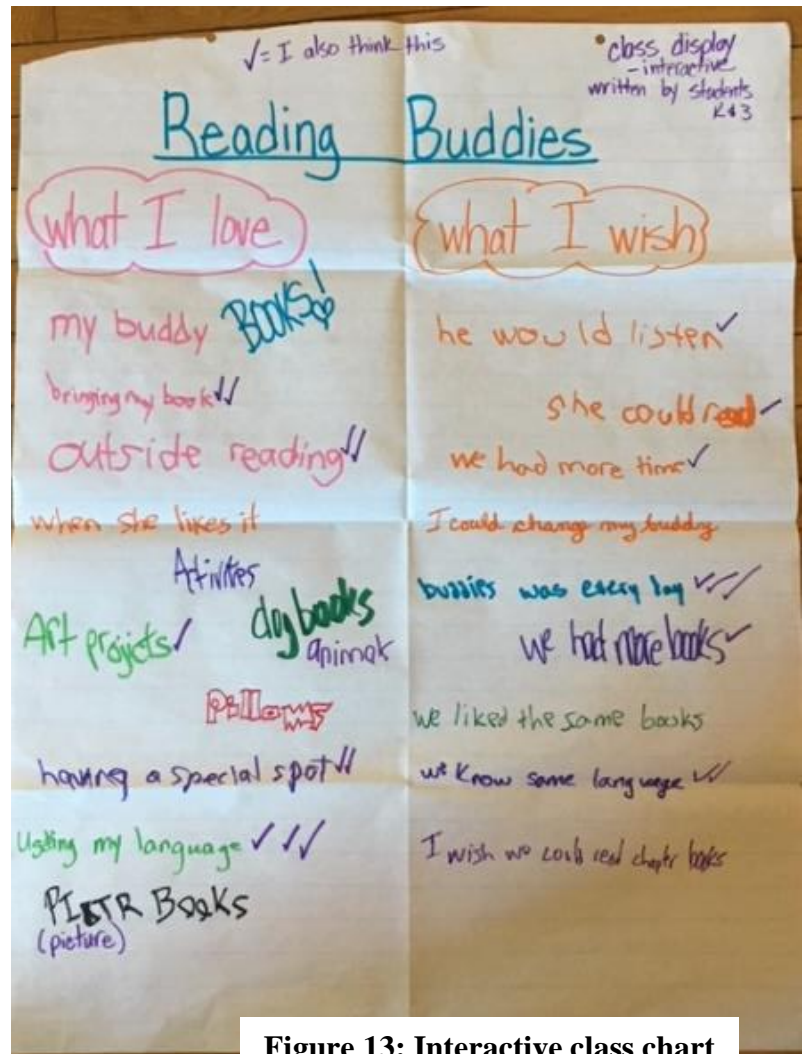 ✓= I also think this
• class display
- interactive
written by students
K&3
Reading Buddies
what I love
my buddy BOOKS!
bringing my book ✓✓
outside reading ✓✓
when she likes it
Ativites
Art projects ✓
dog books
animals
Pillows
having a special spot ✓✓
Usting my language ✓✓✓
PIcTR Books
(picture)
what I wish
he would listen ✓
she could read ✓
we had more time ✓
I could change my buddy
buddies was every day ✓✓✓
we had more books ✓
we liked the same books
we know same language ✓✓
I wish we could read chaptr books
Figure 13: Interactive class chart